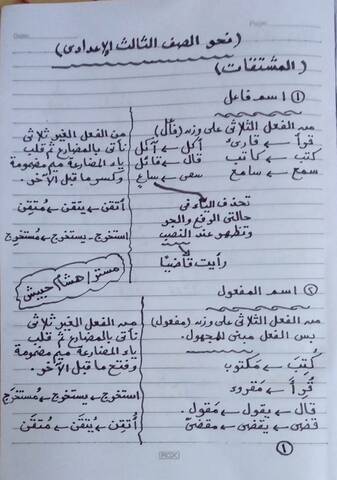 Date:
Page:
(نحو الصف الثالث الإعدادى)
(المشتقات)
① اسم فاعل
من الفعل الثلاثى على وزن (فاعل)
قرأ ← قارئ أكل ← آكل
كتب ← كاتب قال ← قائل
سمع ← سامع سعى ← ساعٍ
تحذف الياء فى
حالتى الرفع والجر
وتظهر عند النصب
رأيت قاضيًا
من الفعل الغير ثلاثى
نأتى بالمضارع ثم قلب
ياء المضارعة ميم مضمومة
وكسر ما قبل الآخر.
أتقن ← يتقن ← مُتقِن
استخرج - يستخرج ← مُستخرِج
مستر/ هشام حبيش
② اسم المفعول
من الفعل الثلاثى على وزن (مفعول)
بس الفعل مبنى للمجهول.
كُتِبَ ← مَكتوب
قُرأ ← مَقروء
قال ← يقول ← مَقول.
قضى ← يقضى ← مَقضىّ
من الفعل الغير ثلاثى
نأتى بالمضارع ثم قلب
ياء المضارعة ميم مضمومة
وفتح ما قبل الآخر.
استخرج ← يستخرج ← مُستخرَج
أُتقِن ← يُتقَن ← مُتقَن
①
ROX